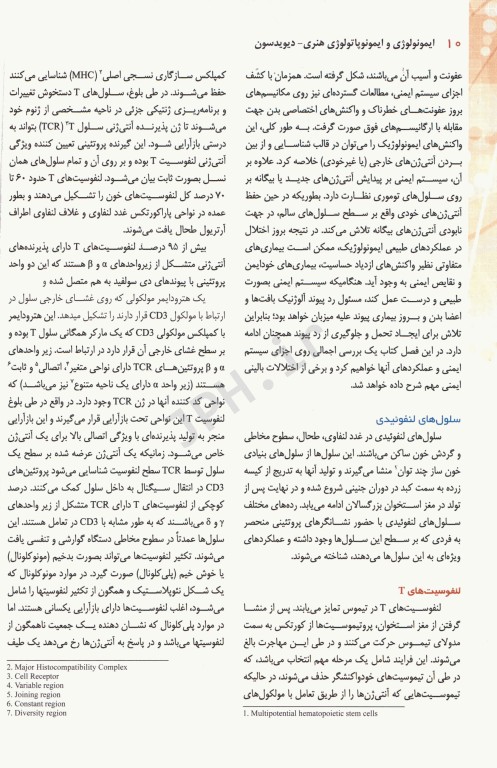 ۱۰ ایمونولوژی و ایمونوپاتولوژی هنری- دیویدسون
عفونت و آسیب آن می‌باشند، شکل گرفته است. همزمان با کشف
اجزای سیستم ایمنی، مطالعات گسترده‌ای نیز روی مکانیسم‌های
بروز عفونت‌های خطرناک و واکنش‌های اختصاصی بدن جهت
مقابله با ارگانیسم‌های فوق صورت گرفت. به طور کلی، این
واکنش‌های ایمونولوژیک را می‌توان در قالب شناسایی و از بین
بردن آنتی‌ژن‌های خارجی (یا غیرخودی) خلاصه کرد. علاوه بر
آن، سیستم ایمنی بر پیدایش آنتی‌ژن‌های جدید یا بیگانه بر
روی سلول‌های توموری نظارت دارد. بطوریکه در حین حفظ
آنتی‌ژن‌های خودی واقع بر سطح سلول‌های سالم، در جهت
نابودی آنتی‌ژن‌های بیگانه تلاش می‌کند. در نتیجه بروز اختلال
در عملکردهای طبیعی ایمونولوژیک، ممکن است بیماری‌های
متفاوتی نظیر واکنش‌های ازدیاد حساسیت، بیماری‌های خودایمن
و نقایص ایمنی به وجود آید. هنگامیکه سیستم ایمنی بصورت
طبیعی و درست عمل کند، مسئول رد پیوند آلوژنیک بافت‌ها و
اعضا بدن و بروز بیماری پیوند علیه میزبان خواهد بود؛ بنابراین
تلاش برای ایجاد تحمل و جلوگیری از رد پیوند همچنان ادامه
دارد. در این فصل کتاب یک بررسی اجمالی روی اجزای سیستم
ایمنی و عملکردهای آنها خواهیم کرد و برخی از اختلالات بالینی
ایمنی مهم شرح داده خواهد شد.
سلول‌های لنفوئیدی
سلول‌های لنفوئیدی در غدد لنفاوی، طحال، سطوح مخاطی
و گردش خون ساکن می‌باشند. این سلول‌ها از سلول‌های بنیادی
خون ساز چند توان۱ منشا می‌گیرند و تولید آنها به تدریج از کیسه
زرده به سمت کبد در دوران جنینی شروع شده و در نهایت پس از
تولد در مغز استخوان بزرگسالان ادامه می‌یابد. رده‌های مختلف
سلول‌های لنفوئیدی با حضور نشانگرهای پروتئینی منحصر
به فردی که بر سطح این سلول‌ها وجود داشته و عملکردهای
ویژه‌ای به این سلول‌ها می‌دهند، شناخته می‌شوند.
لنفوسیت‌های T
لنفوسیت‌های T در تیموس تمایز می‌یابند. پس از منشا
گرفتن از مغز استخوان، پروتیموسیت‌ها از کورتکس به سمت
مدولای تیموس حرکت می‌کنند و در طی این مهاجرت بالغ
می‌شوند. این فرایند شامل یک مرحله مهم انتخاب می‌باشد، که
در طی آن تیموسیت‌های خودواکنشگر حذف می‌شوند، در حالیکه
تیموسیت‌هایی که آنتی‌ژن‌ها را از طریق تعامل با مولکول‌های
1. Multipotential hematopoietic stem cells
کمپلکس سازگاری نسجی اصلی۲ (MHC) شناسایی می‌کنند
حفظ می‌شوند. در طی بلوغ، سلول‌های T دستخوش تغییرات
و برنامه‌ریزی ژنتیکی جزئی در ناحیه مشخصی از ژنوم خود
می‌شوند تا ژن پذیرنده آنتی‌ژنی سلول T۳ (TCR) بتواند به
درستی بازآرایی شود. این گیرنده پروتئینی تعیین کننده ویژگی
آنتی‌ژنی لنفوسیت T بوده و بر روی آن و تمام سلول‌های همان
نسل بصورت ثابت بیان می‌شود. لنفوسیت‌های T حدود ۶۰ تا
۷۰ درصد کل لنفوسیت‌های خون را تشکیل می‌دهند و بطور
عمده در نواحی پاراکورتکس غدد لنفاوی و غلاف لنفاوی اطراف
آرتریول طحال یافت می‌شوند.
بیش از ۹۵ درصد لنفوسیت‌های T دارای پذیرنده‌های
آنتی‌ژنی متشکل از زیرواحدهای α و β هستند که این دو واحد
پروتئینی با پیوندهای دی سولفید به هم متصل شده و
یک هترودایمر مولکولی که روی غشای خارجی سلول در
ارتباط با مولکول CD3 قرار دارند را تشکیل میدهد. این هترودایمر
با کمپلکس مولکولی CD3 که یک مارکر همگانی سلول T بوده و
بر سطح غشای خارجی آن قرار دارد در ارتباط است. زیر واحدهای
α و β پروتئین‌های TCR دارای نواحی متغیر۴، اتصالی۵ و ثابت۶
هستند (زیر واحد α دارای یک ناحیه متنوع۷ نیز می‌باشد) که
نواحی کد کننده آنها در ژن TCR وجود دارد. در واقع در طی بلوغ
لنفوسیت T این نواحی تحت بازآرایی قرار می‌گیرند و این بازآرایی
منجر به تولید پذیرنده‌ای با ویژگی اتصالی بالا برای یک آنتی‌ژن
خاص می‌شود. زمانیکه یک آنتی‌ژن عرضه شده بر سطح یک
سلول توسط TCR سطح لنفوسیت شناسایی می‌شود پروتئین‌های
CD3 در انتقال سیگنال به داخل سلول کمک می‌کنند. درصد
کوچکی از لنفوسیت‌های T دارای TCR متشکل از زیر واحدهای
γ و δ می‌باشند که به طور مشابه با CD3 در تعامل هستند. این
سلول‌ها عمدتاً در سطوح مخاطی دستگاه گوارشی و تنفسی یافت
می‌شوند. تکثیر لنفوسیت‌ها می‌تواند بصورت بدخیم (مونوکلونال)
یا خوش خیم (پلی‌کلونال) صورت گیرد. در موارد مونوکلونال که
یک شکل نئوپلاستیک و همگون از تکثیر لنفوسیتها را شامل
می‌شود، اغلب لنفوسیت‌ها دارای بازآرایی یکسانی هستند. اما
در موارد پلی‌کلونال که نشان دهنده یک جمعیت ناهمگون از
لنفوسیتها می‌باشد و در پاسخ به آنتی‌ژن‌ها رخ می‌دهد یک طیف
2. Major Histocompatibility Complex
3. Cell Receptor
4. Variable region
5. Joining region
6. Constant region
7. Diversity region